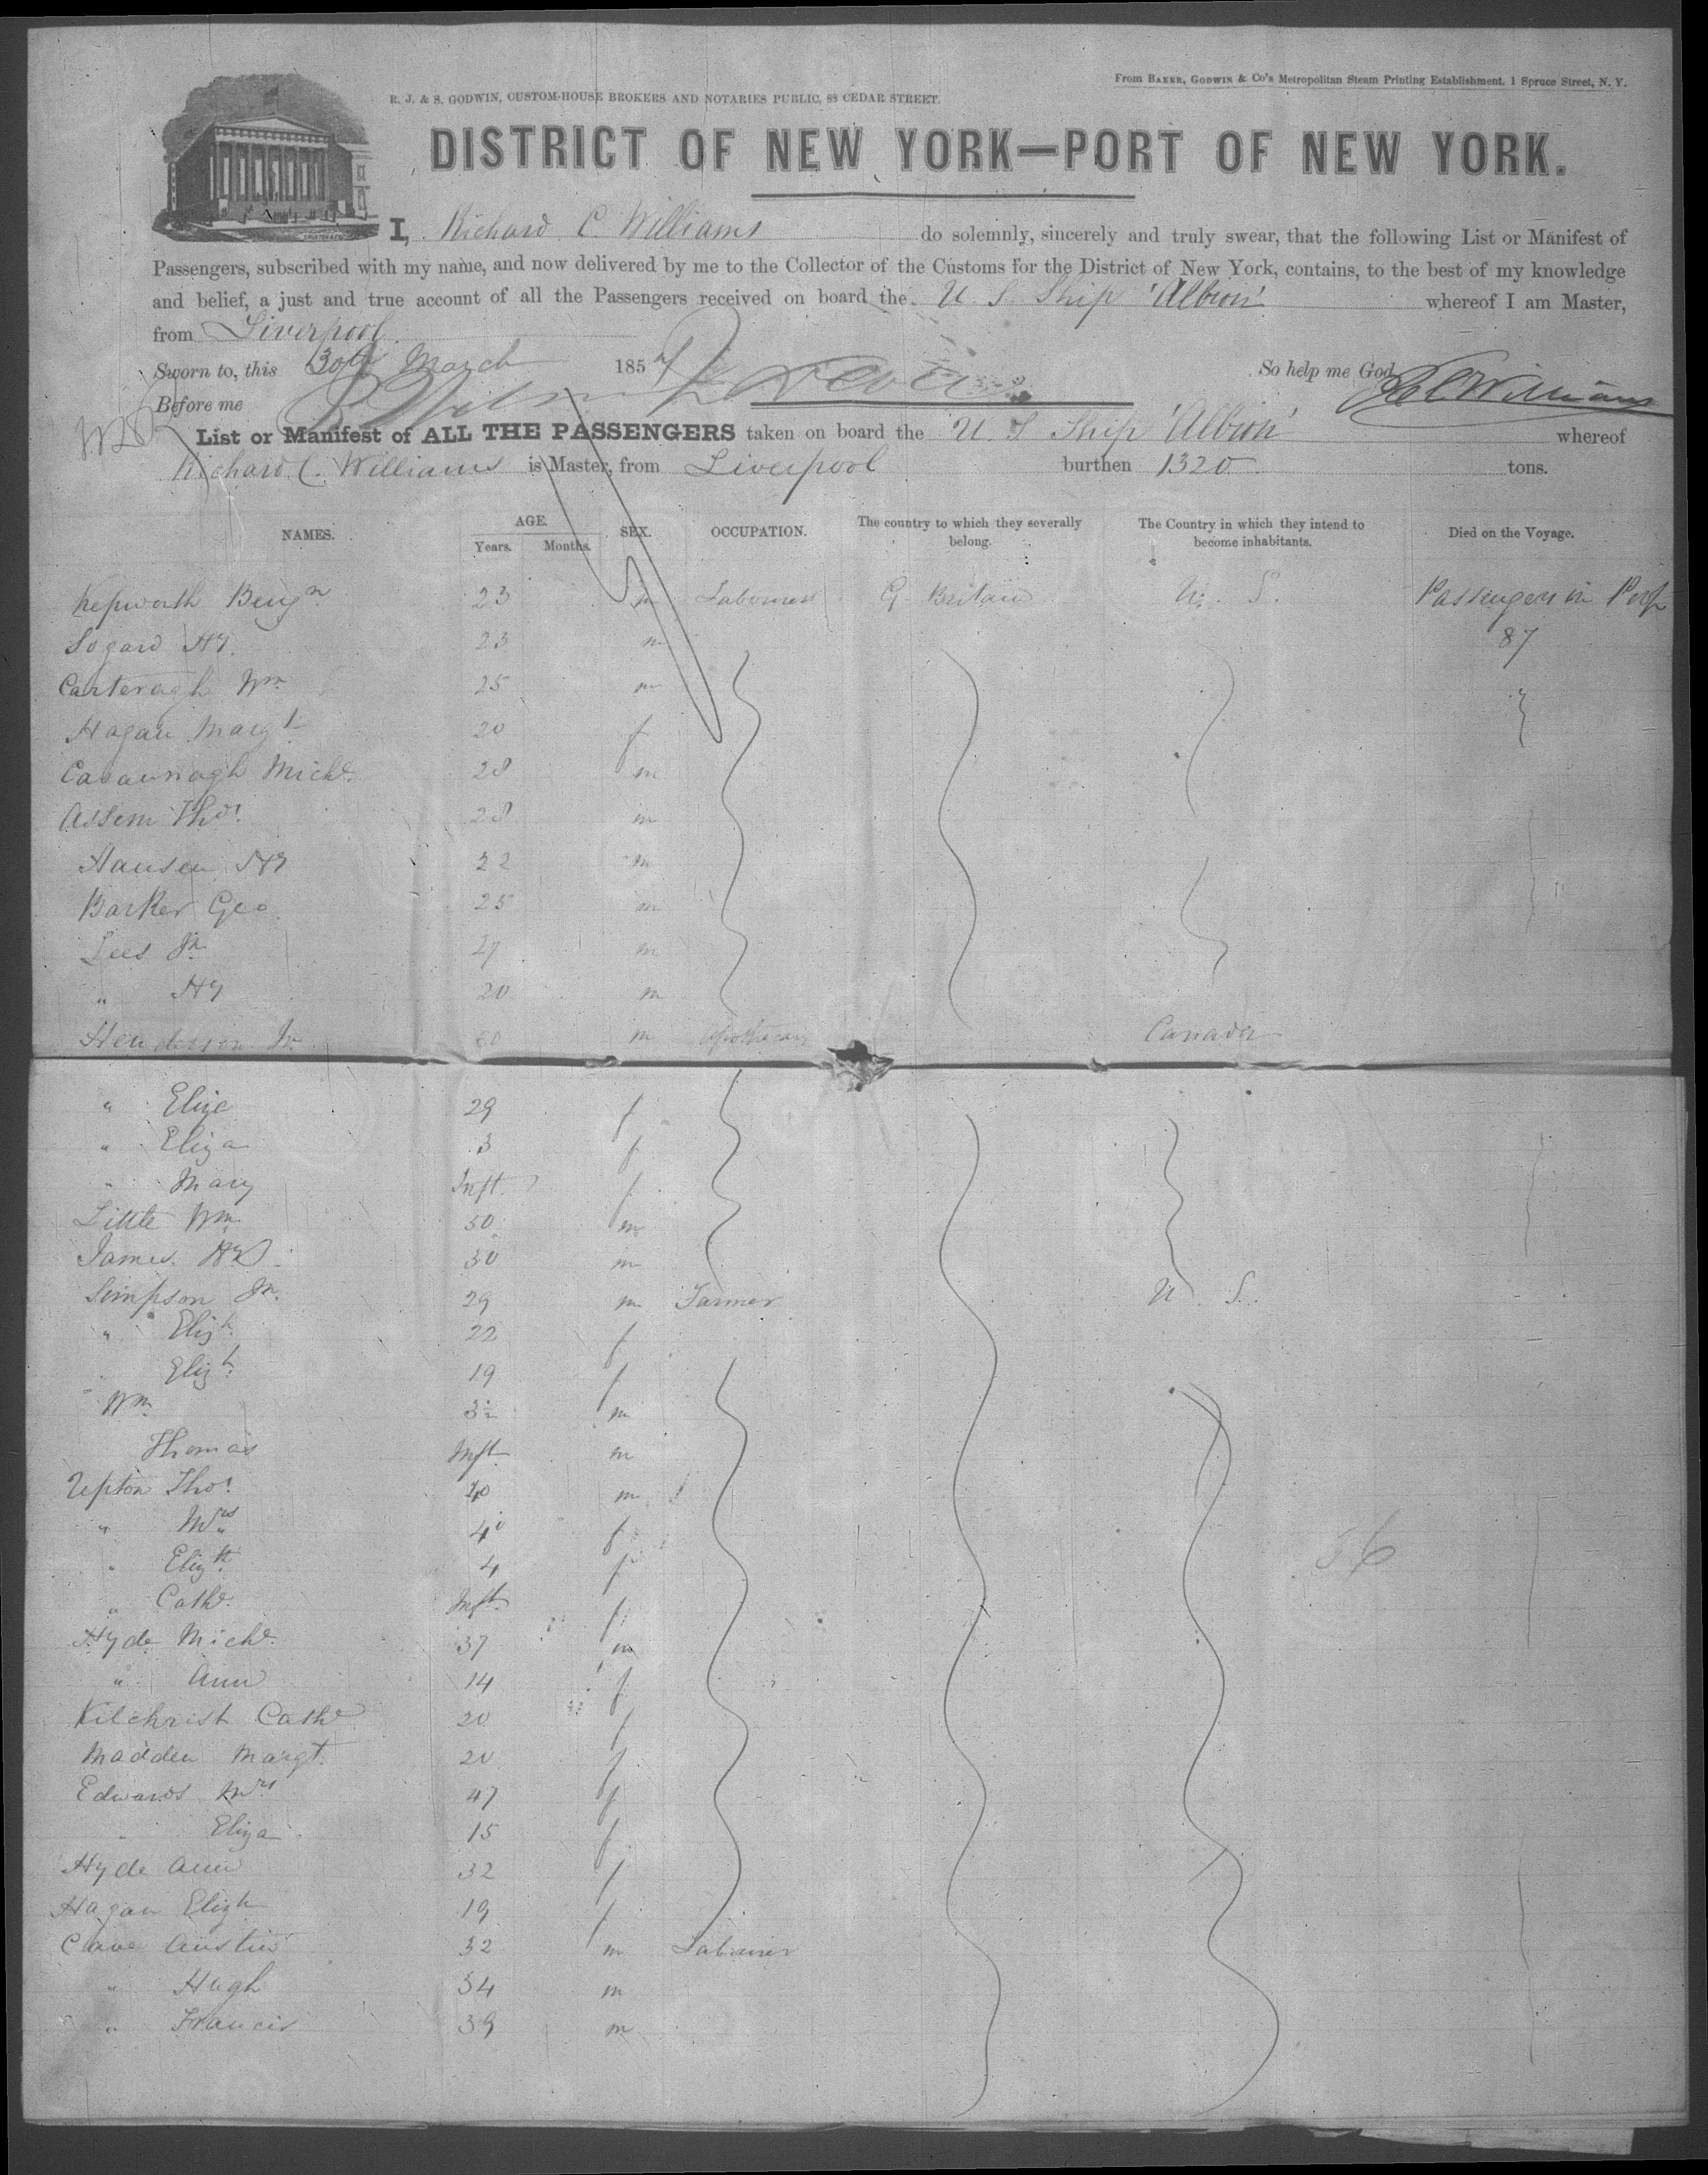 From BAKER, GODWIN & Co's Metropolitan Steam Printing Establishment, 1 Spruce Street, N. Y.
R. J. & S. GODWIN, CUSTOM-HOUSE BROKERS AND NOTARIES PUBLIC, 88 CEDAR STREET.
DISTRICT OF NEW YORK—PORT OF NEW YORK.
I, Richard C. Williams do solemnly, sincerely and truly swear, that the following List or Manifest of
Passengers, subscribed with my name, and now delivered by me to the Collector of the Customs for the District of New York, contains, to the best of my knowledge
and belief, a just and true account of all the Passengers received on board the U. S. Ship 'Albion' whereof I am Master,
from Liverpool
Sworn to, this 30th March 185 So help me God
Before me R C Williams
List or Manifest of ALL THE PASSENGERS taken on board the U. S Ship 'Albion' whereof
Richard C. Williams is Master, from Liverpool burthen 1320 tons.
NAMES. AGE. SEX. OCCUPATION. The country to which they severally belong. The Country in which they intend to become inhabitants. Died on the Voyage.
Years. Months.
Hepworth Benjn 23 m Labourers G. Britain U. S. Passengers in Poop
Hy. 23 m 87
Wm 25 m
Hagan Margt 20 f
Cavannagh Michl. 28 m
Thos. 28 m
Hansen Hy 22 m
Barker Geo. 25 m
Lees Jn. 27 m
" Hy 20 m
Henderson Jn. m Apothecary Canada
" Eliza 29 f
" Eliza 3 f
" Mary Inft. f
Little Wm 50 m
James 30 m
Simpson Jn. 29 m Farmer U. S.
" Elizh. 22 f
" Elizh. 19 f
" Wm. 3½ m
Thomas Inft. m
Upton Thos. 40 m
" Mrs 40 f
" Elizth. 4 f 56
" Cathe. Inft. f
Hyde Michl. 37 m
" Ann 14 f
Kilchrist Cathe 20 f
Madden Margt. 20 f
Edwards Mrs 47 f
" Eliza 15 f
Hyde Ann 32 f
Hagan Elizh 19 f
Cave Austin 32 m Labourer
" Hugh 34 m
" Francis 39 m